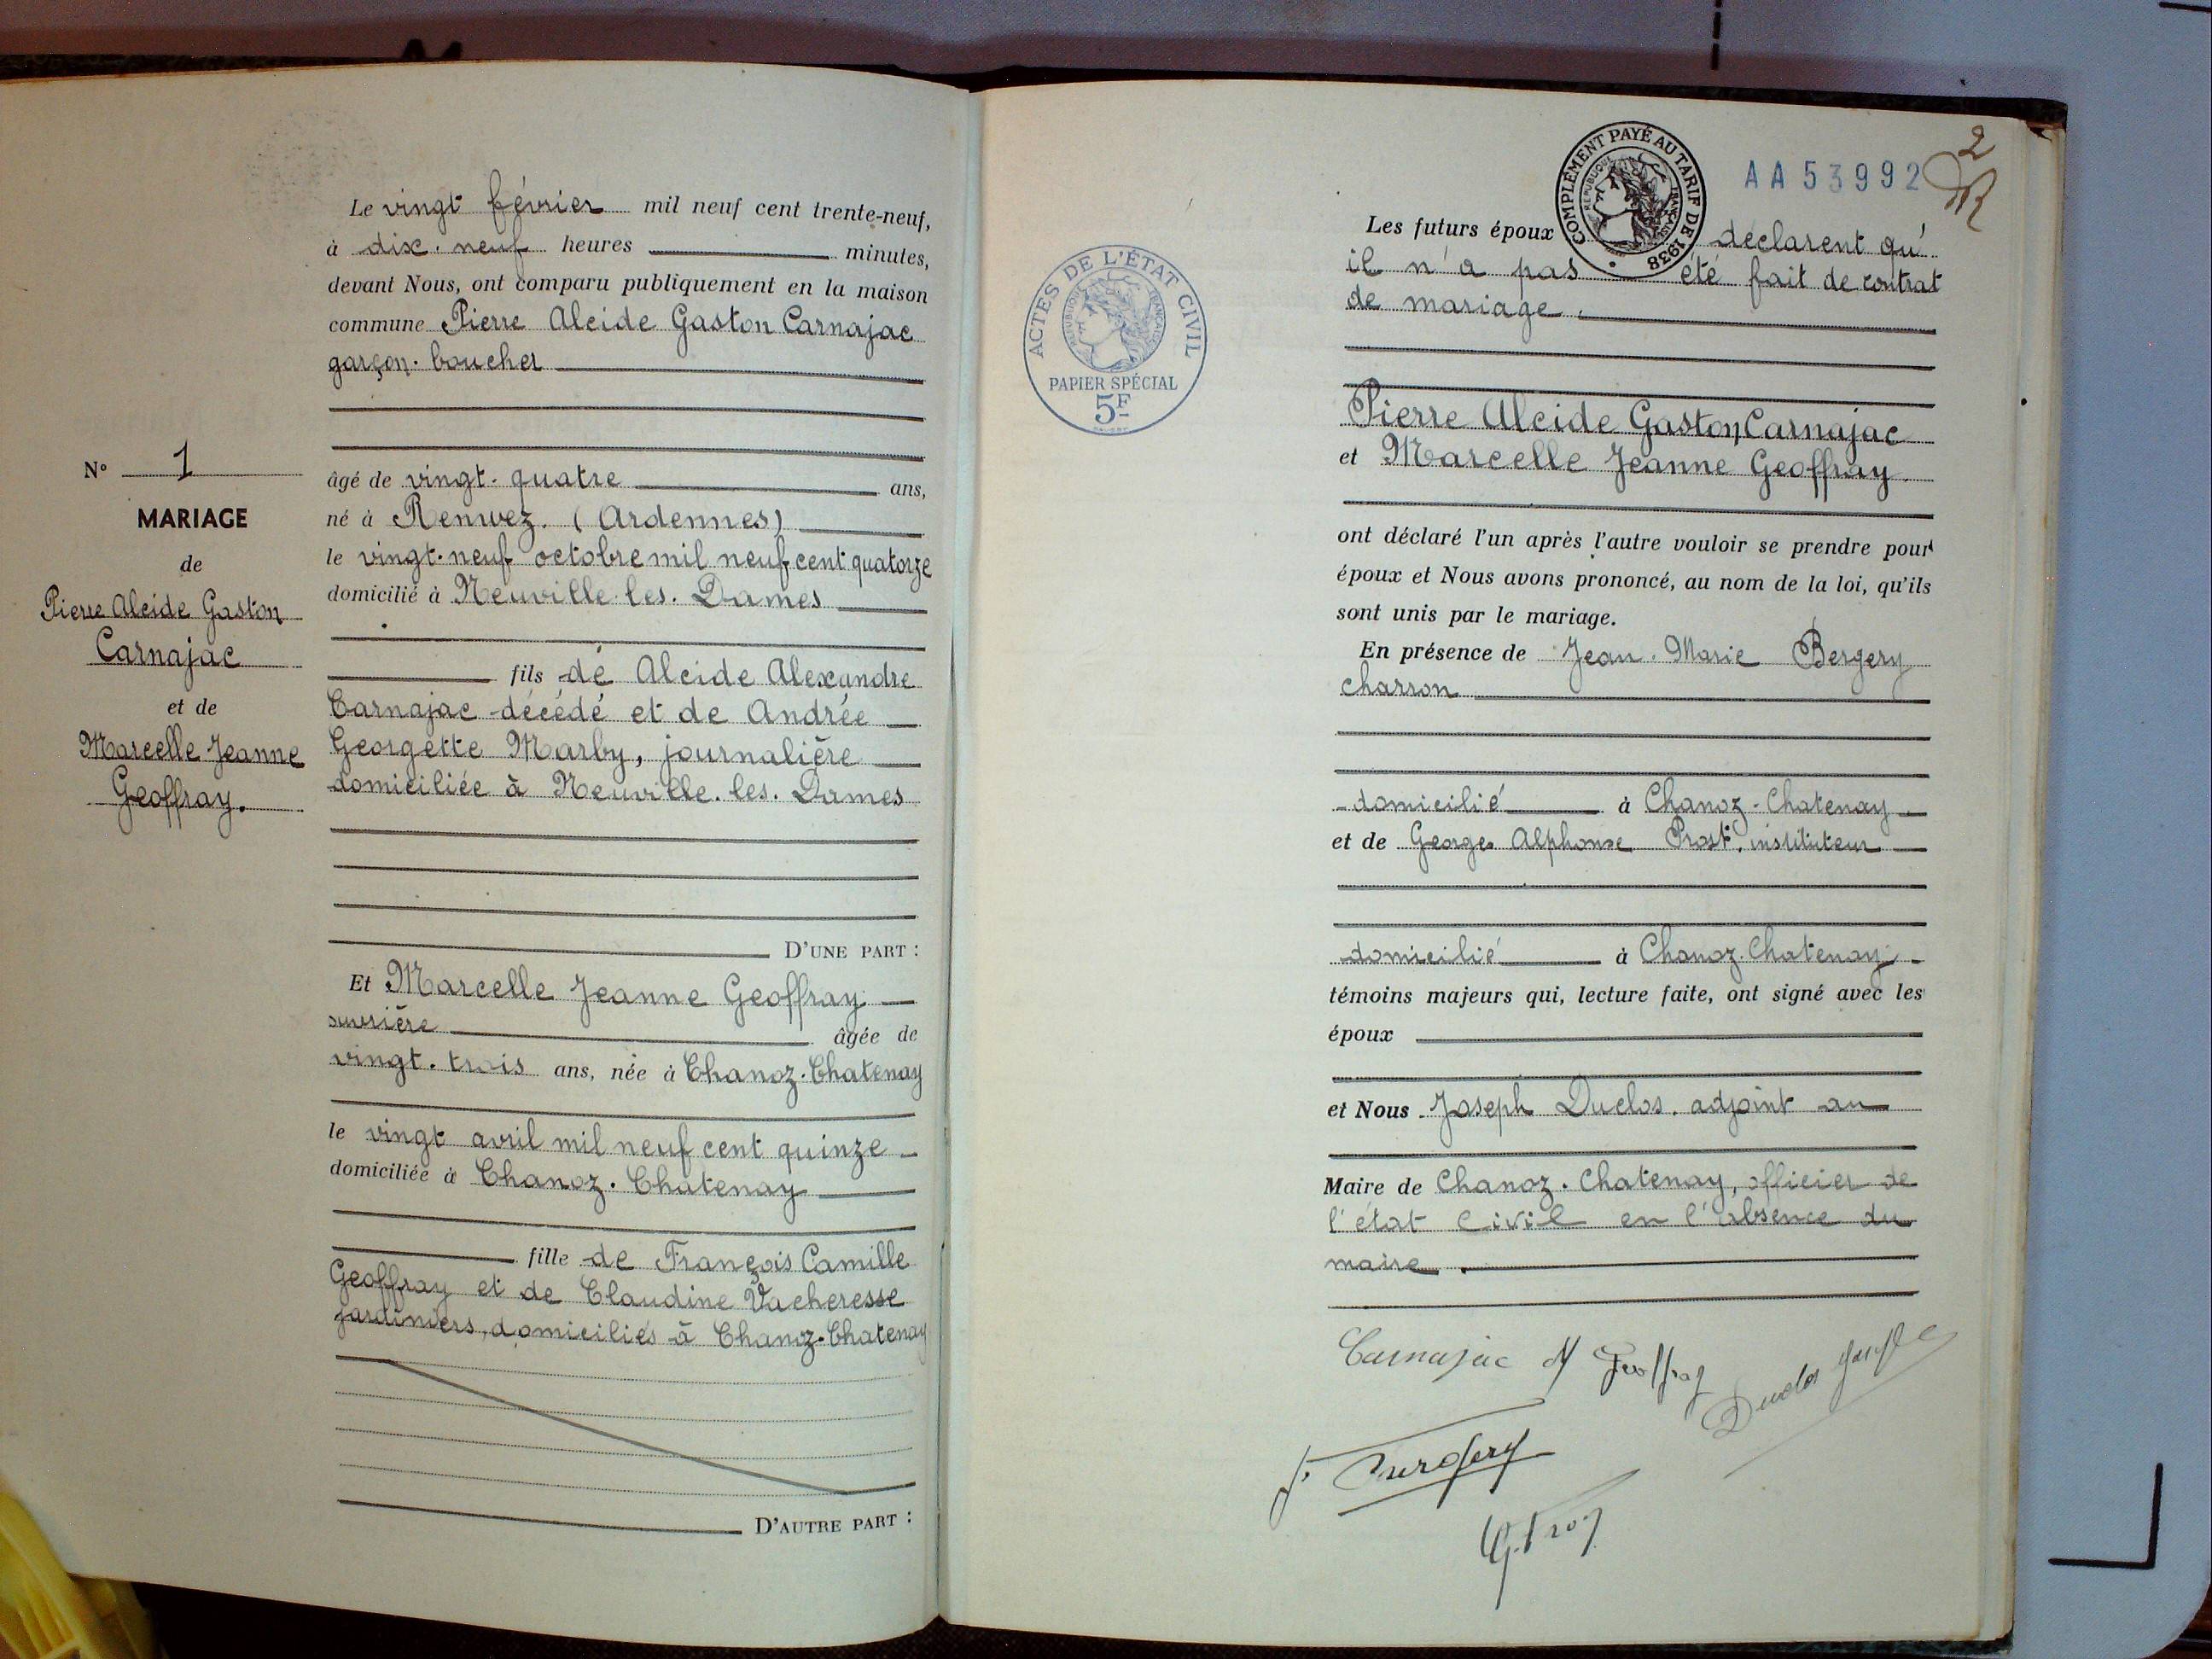 N° 1
MARIAGE
de
Pierre Alcide Gaston
Carnajac
et de
Marcelle Jeanne
Geoffray.
Le vingt février mil neuf cent trente-neuf,
à dix-neuf heures minutes,
devant Nous, ont comparu publiquement en la maison
commune Pierre Alcide Gaston Carnajac
garçon-boucher
âgé de vingt-quatre ans,
né à Renwez. (Ardennes)
le vingt-neuf octobre mil neuf cent quatorze
domicilié à Neuville-les-Dames
fils de Alcide Alexandre
Carnajac décédé et de Andrée
Georgette Marby, journalière
domiciliée à Neuville-les-Dames
D'UNE PART :
Et Marcelle Jeanne Geoffray
ouvrière âgée de
vingt-trois ans, née à Chanoz-Chatenay
le vingt avril mil neuf cent quinze
domiciliée à Chanoz-Chatenay
fille de François Camille
Geoffray et de Claudine Vacheresse
jardiniers, domiciliés à Chanoz-Chatenay
D'AUTRE PART :
ACTES DE L'ÉTAT CIVIL
RÉPUBLIQUE FRANÇAISE
PAPIER SPÉCIAL
5F
COMPLÉMENT PAYÉ AU TARIF DE 1938
RÉPUBLIQUE FRANÇAISE
AA53992
2
Les futurs époux déclarent qu'
il n'a pas été fait de contrat
de mariage.
Pierre Alcide Gaston Carnajac
et Marcelle Jeanne Geoffray
ont déclaré l'un après l'autre vouloir se prendre pour
époux et Nous avons prononcé, au nom de la loi, qu'ils
sont unis par le mariage.
En présence de Jean-Marie Bergery
charron
domicilié à Chanoz-Chatenay
et de Georges Alphonse Prost, instituteur
domicilié à Chanoz-Chatenay
témoins majeurs qui, lecture faite, ont signé avec les
époux
et Nous Joseph Duclos. adjoint au
Maire de Chanoz-Chatenay, officier de
l'état civil en l'absence du
maire.
Carnajac M Geoffray
Duclos Joseph
J. Bergery
G. Prost